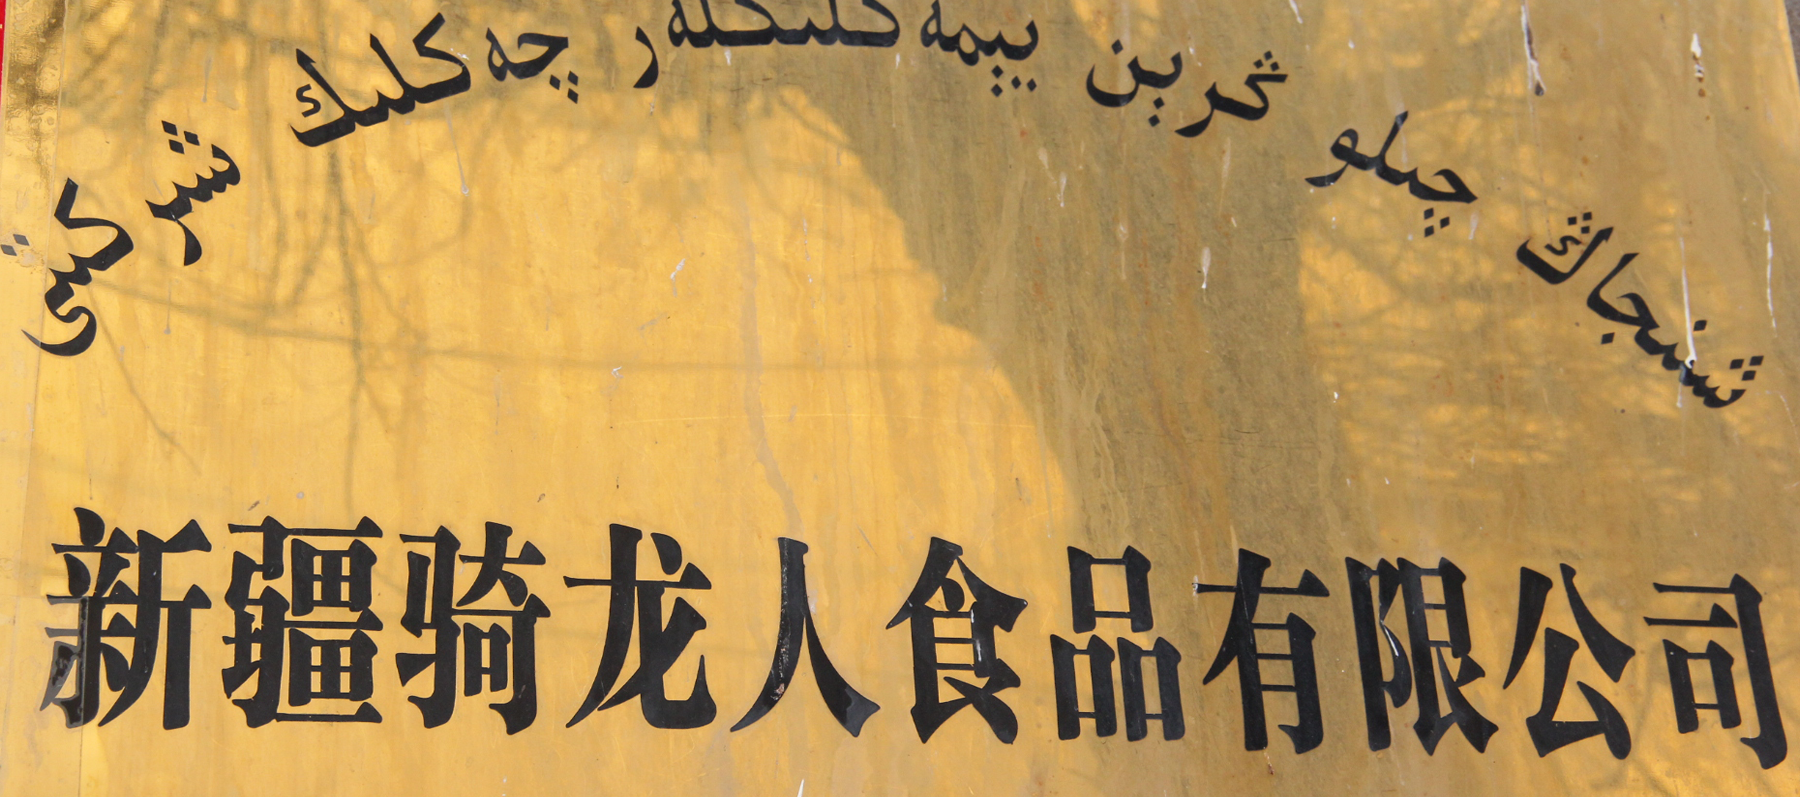 شىنجاڭ چىلۇڭرېن يېمەكلىكلەر چەكلىك شىركىتى
新疆骑龙人食品有限公司